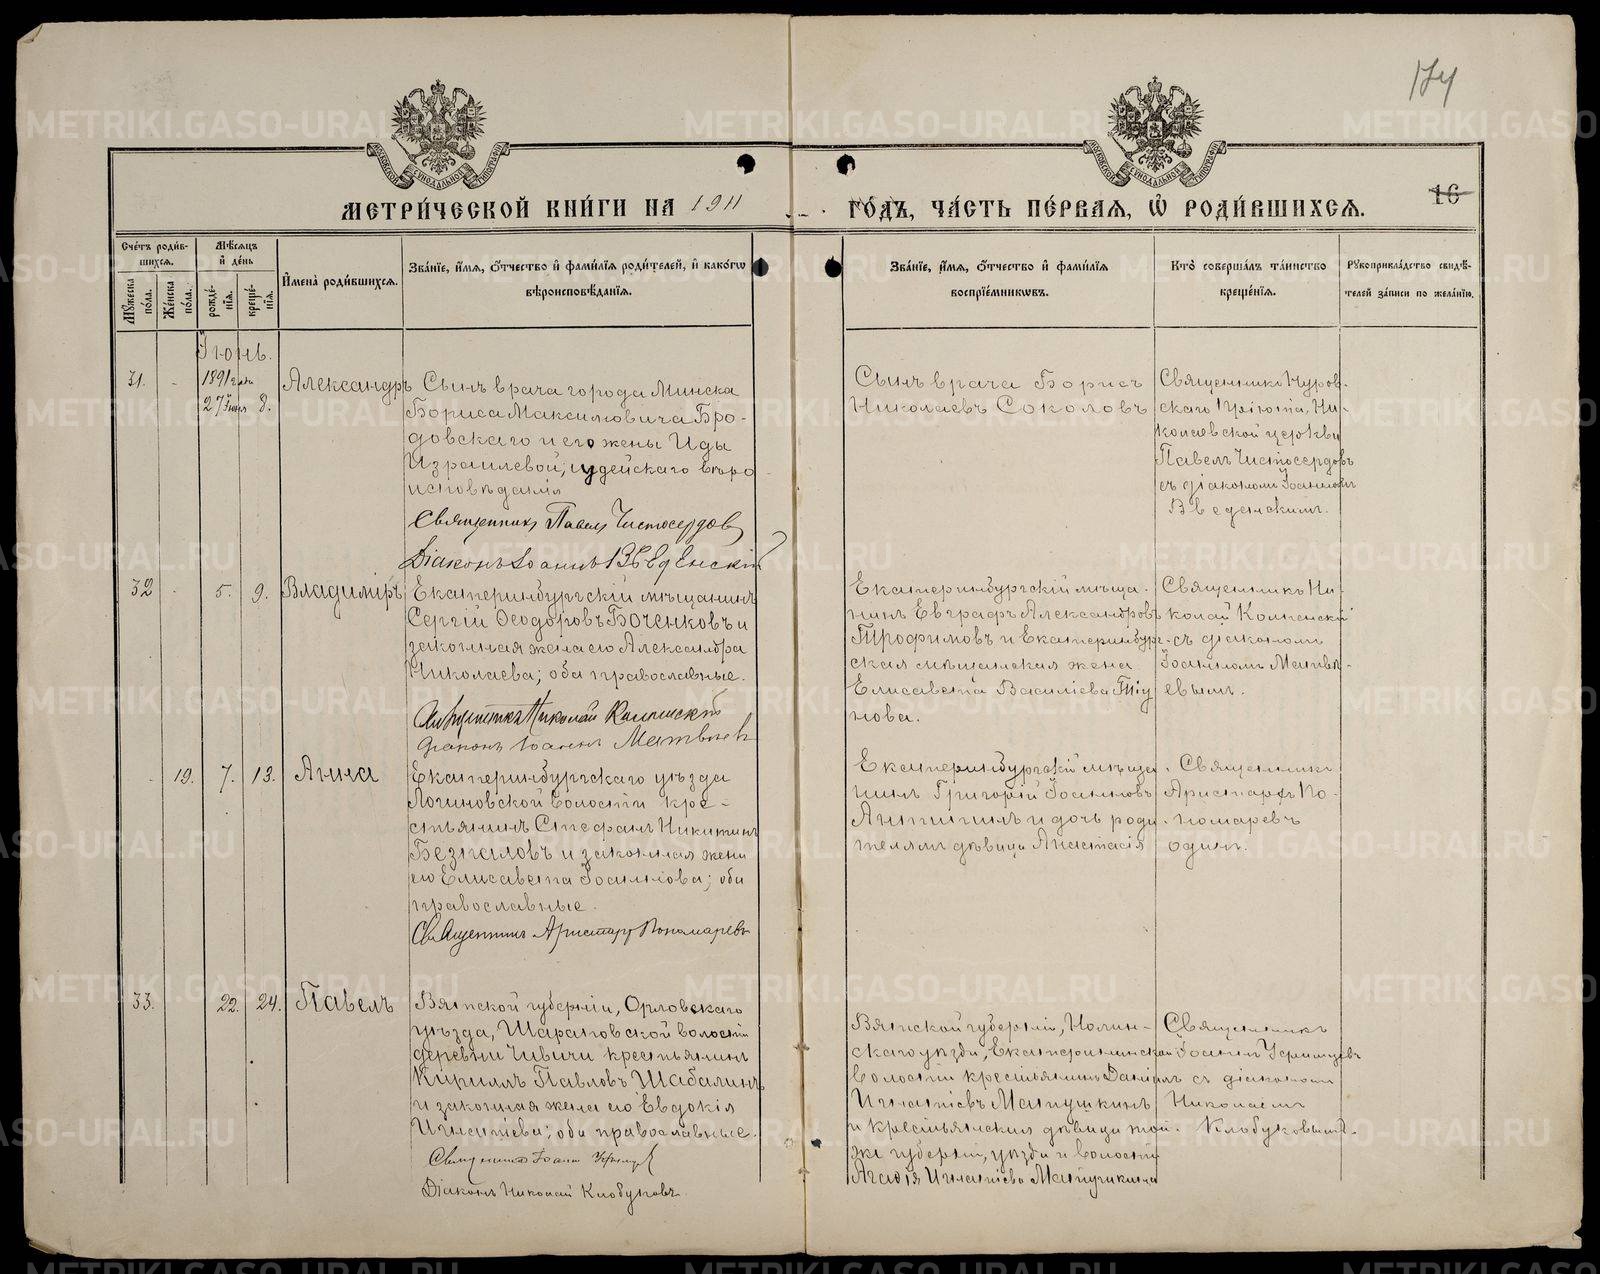 174
МЕТРИ́ЧЕСКОЙ КНИ́ГИ НА 1911 ГО́ДЪ, ЧА́СТЬ ПЕ́РВАЯ, Ѽ РОДИ́ВШИХСЯ.
16
Сче́тъ роди́в-
шихся.
Мѣ́сяцъ
и҆ де́нь
Мꙋ́жеска
по́ла.
Же́нска
по́ла.
рожде́-
нїя.
креще́-
нїя.
И҆мена̀ роди́вшихся.
Зва́нїе, и҆́мя, ѻ҆́тчество и҆ фами́лїя роди́телей, и҆ како́гѡ
вѣроисповѣ́данїя.
Зва́нїе, и҆́мя, ѻ҆́тчество и҆ фами́лїя
воспрїе́мникѡвъ.
Кто̀ соверша́лъ та́инство
креще́нїя.
Рꙋкоприкла́дство свидѣ́-
телей за́писи по жела́нїю.
Іюнь.
31.
-
1891 года
27 Іюня
8.
Александръ
Сынъ врача города Минска
Бориса Максимовича Бро-
довскаго и его жены Иды
Израилевой, іудейскаго вѣро
исповѣданія
Священникъ Павелъ Чистосердовъ
Діаконъ Іоаннъ Введенскій
Сынъ врача Борисъ
Николаевъ Соколовъ
Священникъ Нуров-
скаго Пріюта, Ни-
колаевской церкви
Павелъ Чистосердовъ
съ діакономъ Іоанномъ
Введенскимъ.
32
-
5.
9.
Владиміръ
Екатеринбургскій мѣщанинъ
Сергій Ѳеодоровъ Боченковъ и
законная жена его Александра
Николаева; оба православные.
Священникъ Николай
діаконъ Іоаннъ Матвѣевъ
Екатеринбургскій мѣща-
нинъ Евграфъ Александровъ
Трофимовъ и Екатеринбург-
ская мѣщанская жена
Елисавета Василіева Тіу
нова.
Священникъ Ни-
колай
съ діакономъ
Іоанномъ Матвѣ-
евымъ.
-
19.
7.
13.
Анна
Екатеринбургскаго уѣзда
Логиновской волости кре-
стьянинъ Стефанъ Никитинъ
Безпаловъ и законная жена
его Елисавета Іоаннова; оба
православные.
Священникъ Аристархъ Пономаревъ
Екатеринбургскій мѣща-
нинъ Григорій Іоанновъ
Антипинъ и дочь роди-
телямъ дѣвица Анастасія
Священникъ
Аристархъ По-
номаревъ
одинъ.
33.
22.
24.
Павелъ
Вятской губерніи, Орловскаго
уѣзда, Шарановской волости
деревни Чивичи крестьянинъ
Кириллъ Павловъ Шабалинъ
и законная жена его Евдокія
Игнатіева; оба православные.
Священникъ Іоаннъ
Діаконъ Николай Клобуковъ.
Вятской губерніи, Нолин-
скаго уѣзда, Екатерининской
волости крестьянинъ Даніилъ
Игнатіевъ Матушкинъ
и крестьянская дѣвица той-
же губерніи, уѣзда и волости
Агафія Игнатіева Матушкина
Священникъ
Іоаннъ
съ діакономъ
Николаемъ
Клобуковымъ.
METRIKI.GASO-URAL.RU